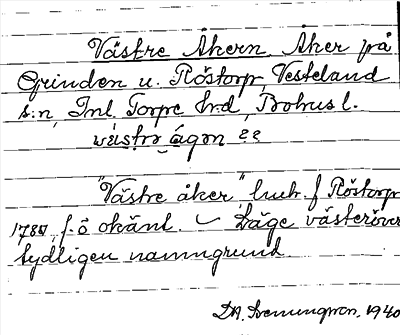 Västre Åkern. Åker på
Grinden u. Röstorp, Vesteland
s:n, Inl. Torpe hrd, Bohusl.
västrə ågəṇ
"Västre åker" huk. f. Röstorp
1780, f. ö. okänt. – Läge västeröver
tydligen namngrund.
D.A. 1940